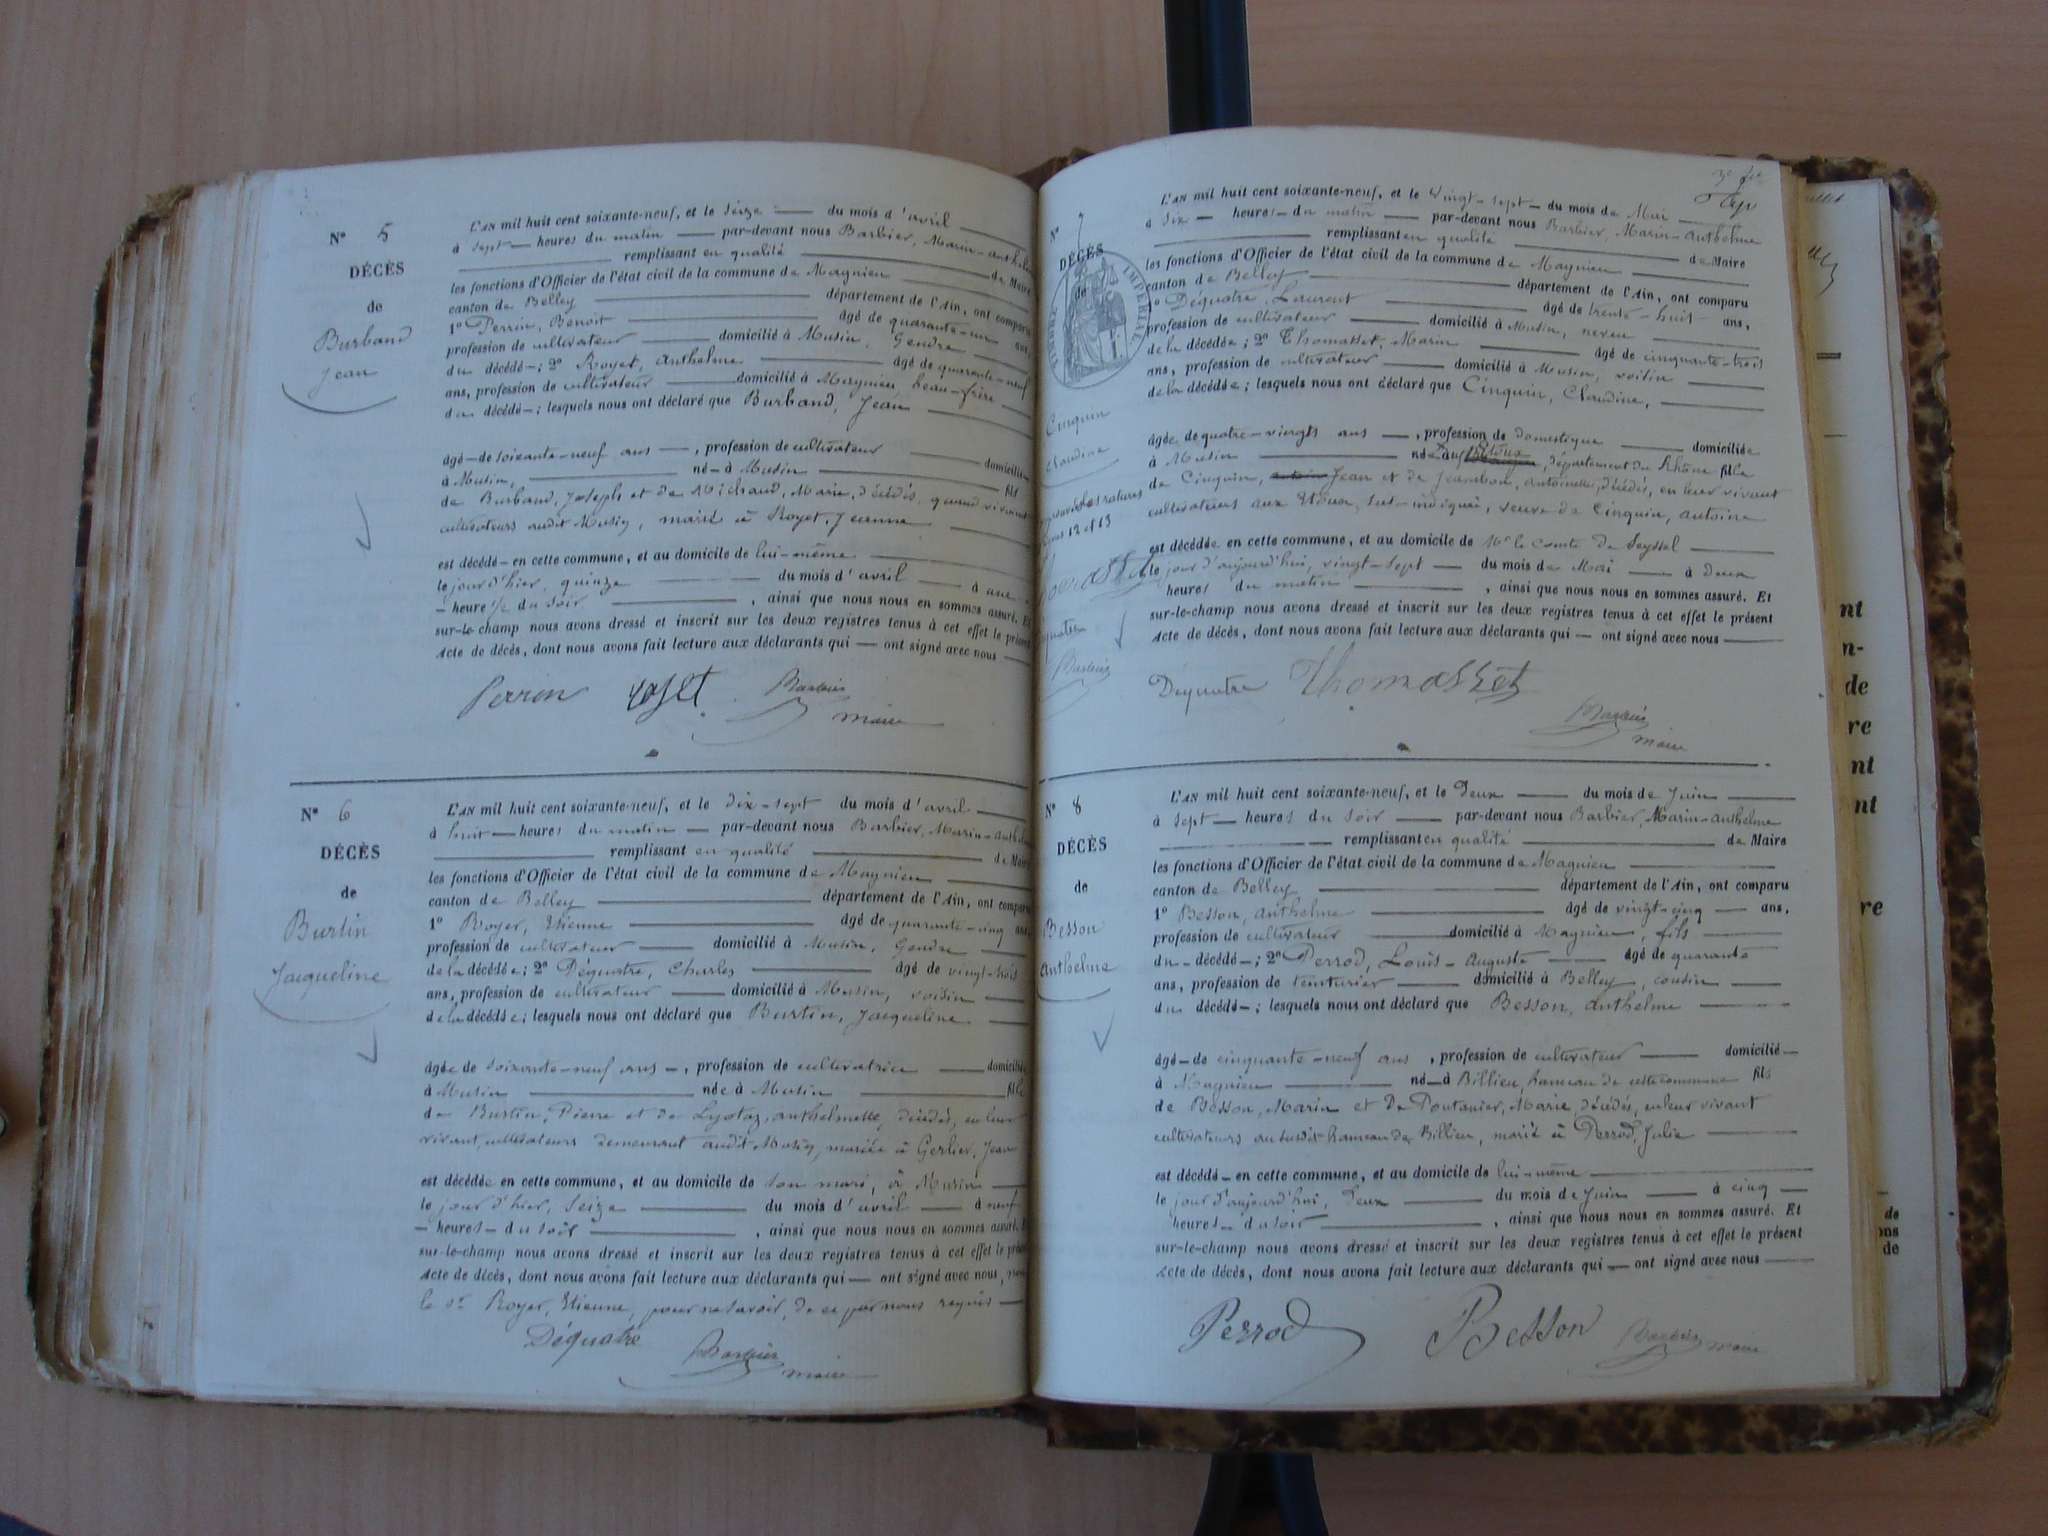 N° 5
DÉCÈS
de
Burband
Jean
L'AN mil huit cent soixante-neuf, et le seize — du mois d'avril —
à sept — heures du matin — par-devant nous Barbier, Marin-Anthelme
remplissant en qualité de Maire
les fonctions d'Officier de l'état civil de la commune de Magnieu
canton de Belley — département de l'Ain, ont comparu
1° Perrin, Benoit — âgé de quarante-un ans,
profession de cultivateur — domicilié à Musin, Gendre
du décédé ; 2° Royet, Anthelme — âgé de quarante-neuf
ans, profession de cultivateur — domicilié à Magnieu, beau-frère
du décédé ; lesquels nous ont déclaré que Burband, Jean
âgé de soixante-neuf ans —, profession de cultivateur — domicilié
à Musin, — né à Musin — fils
de Burband, Joseph et de Michaud, Marie, décédés, quand vivaient
cultivateurs audit Musin, marié à Royet, Jeanne
est décédé en cette commune, et au domicile de lui-même
le jour d'hier, quinze — du mois d'avril — à une
heure ½ du soir —, ainsi que nous nous en sommes assuré. Et
sur-le-champ nous avons dressé et inscrit sur les deux registres tenus à cet effet le présent
Acte de décès, dont nous avons fait lecture aux déclarants qui — ont signé avec nous —
Perrin Barbier
maire
N° 6
DÉCÈS
de
Burtin
Jacqueline
L'AN mil huit cent soixante-neuf, et le dix-sept du mois d'avril —
à huit — heures du matin — par-devant nous Barbier, Marin-Anthelme
remplissant en qualité de Maire
les fonctions d'Officier de l'état civil de la commune de Magnieu
canton de Belley — département de l'Ain, ont comparu
1° Royer, Etienne — âgé de quarante-cinq ans
profession de cultivateur — domicilié à Musin, Gendre
de la décédée ; 2° Déquatre, Charles — âgé de vingt-trois
ans, profession de cultivateur — domicilié à Musin, voisin
de la décédée ; lesquels nous ont déclaré que Burtin, Jacqueline
âgée de soixante-neuf ans —, profession de cultivatrice — domiciliée
à Musin — née à Musin — fille
de Burtin, Pierre et de anthelmette, décédés, en leur
vivant, cultivateurs demeurant audit Musin, mariée à Gerlier, Jean
est décédée en cette commune, et au domicile de son mari, à Musin
le jour d'hier, seize — du mois d'avril — à neuf
— heures — du soir —, ainsi que nous nous en sommes assuré. Et
sur-le-champ nous avons dressé et inscrit sur les deux registres tenus à cet effet le présent
Acte de décès, dont nous avons fait lecture aux déclarants qui — ont signé avec nous, non
le sr Royer, Etienne, pour ne savoir, de ce par nous requis —
Déquatre Barbier
maire
N°
DÉCÈS
de
TIMBRE IMPÉRIAL
Cinquin
Claudine
L'AN mil huit cent soixante-neuf, et le vingt-sept — du mois de Mai —
à six — heures — du matin — par-devant nous Barbier, Marin-Anthelme
remplissant en qualité de Maire
les fonctions d'Officier de l'état civil de la commune de Magnieu
canton de Belley — département de l'Ain, ont comparu
1° Déquatre, Laurent — âgé de trente-huit ans,
profession de cultivateur — domicilié à Musin, neveu
de la décédée ; 2° Thomasset, Marin — âgé de cinquante-trois
ans, profession de cultivateur — domicilié à Musin, voisin
de la décédée ; lesquels nous ont déclaré que Cinquin, Claudine,
âgée de quatre-vingts ans —, profession de domestique — domiciliée
à Musin — née département du Rhône fille
de Cinquin, Jean et de Jeambon, antoinette, décédés, en leur vivant
cultivateurs aux sus-indiqué, veuve de Cinquin, antoine
est décédée en cette commune, et au domicile de Mr le Comte de Seyssel
le jour d'aujourd'hui, vingt-sept — du mois de Mai — à deux
heures du matin —, ainsi que nous nous en sommes assuré. Et
sur-le-champ nous avons dressé et inscrit sur les deux registres tenus à cet effet le présent
Acte de décès, dont nous avons fait lecture aux déclarants qui — ont signé avec nous —
Déquatre Thomasset
Barbier
maire
N° 8
DÉCÈS
de
Besson
Anthelme
L'AN mil huit cent soixante-neuf, et le Deux — du mois de Juin —
à sept — heures du soir — par-devant nous Barbier, Marin-Anthelme
remplissant en qualité de Maire
les fonctions d'Officier de l'état civil de la commune de Magnieu
canton de Belley — département de l'Ain, ont comparu
1° Besson, Anthelme — âgé de vingt-cinq — ans,
profession de cultivateur — domicilié à Magnieu, fils
du décédé ; 2° Perrod, Louis-Auguste — âgé de quarante
ans, profession de teinturier — domicilié à Belley, cousin
du décédé ; lesquels nous ont déclaré que Besson, Anthelme
âgé de cinquante-neuf ans, profession de cultivateur — domicilié
à Magnieu — né à Billieu, hameau de cette commune fils
de Besson, Marin et de Pontanier, Marie, décédés, en leur vivant
cultivateurs au susdit hameau de Billieu, marié à Perrod, Julie
est décédé en cette commune, et au domicile de lui-même
le jour d'aujourd'hui, Deux — du mois de Juin — à cinq
heures — du soir —, ainsi que nous nous en sommes assuré. Et
sur-le-champ nous avons dressé et inscrit sur les deux registres tenus à cet effet le présent
Acte de décès, dont nous avons fait lecture aux déclarants qui — ont signé avec nous —
Perrod Besson Barbier maire